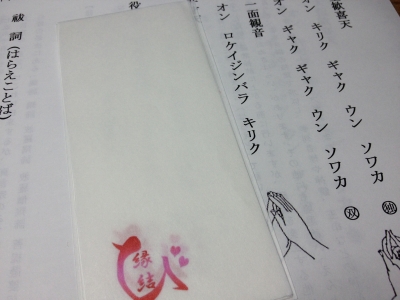 歓喜天
オン キリク ギャク ウン ソワカ ㊚
オン ギャク ギャク ウン ソワカ
一面観音
オン ロケイジンバラ キリク
役
祓 詞(はらえことば)
縁結び